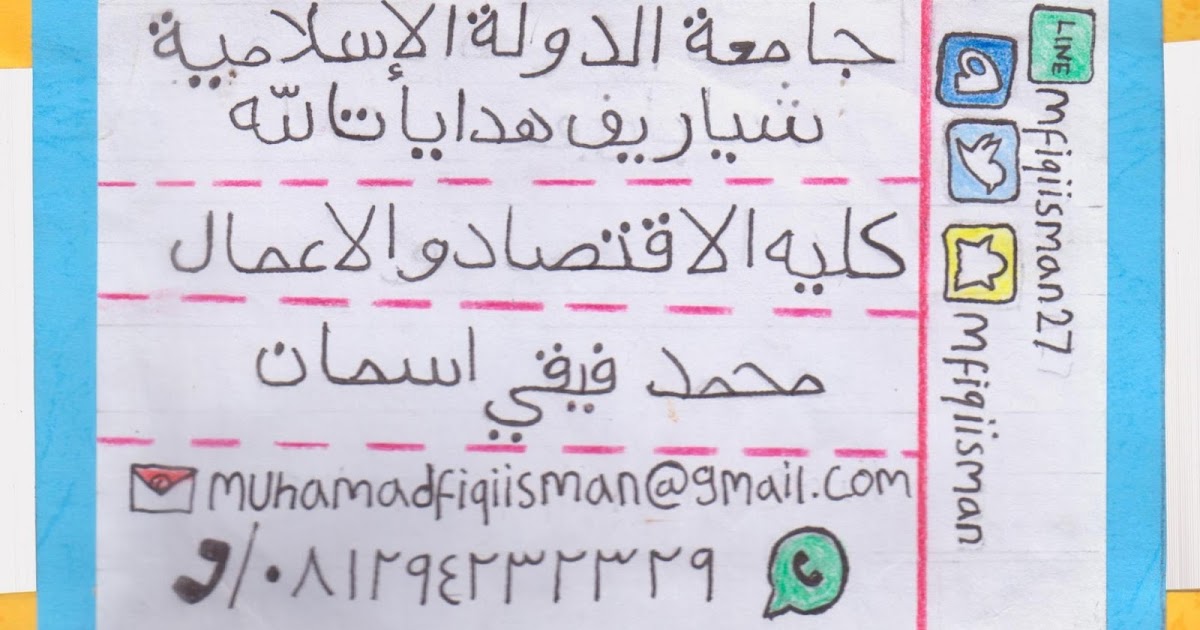 جامعة الدولة الإسلامية
شياريف هداياتالله
كليه الاقتصاد والاعمال
محمد فيقي اسمان
muhamadfiqiisman@gmail.com
/٠٨١٢٩٤٢٣٢٣٢٩
LINE
mfiqiisman27
a
mfiqiisman